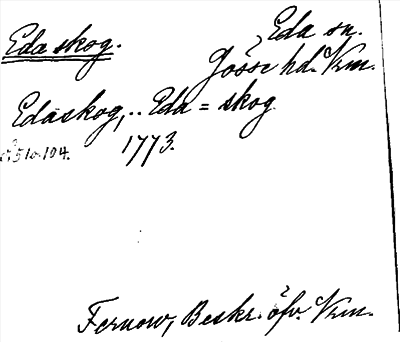 Eda skog.
Eda sn.
Jösse hd. Vrm.
Edaskog, .. Eda = skog
s. 510. 104.
1773.
Fernow, Beskr. öfv. Vrm.